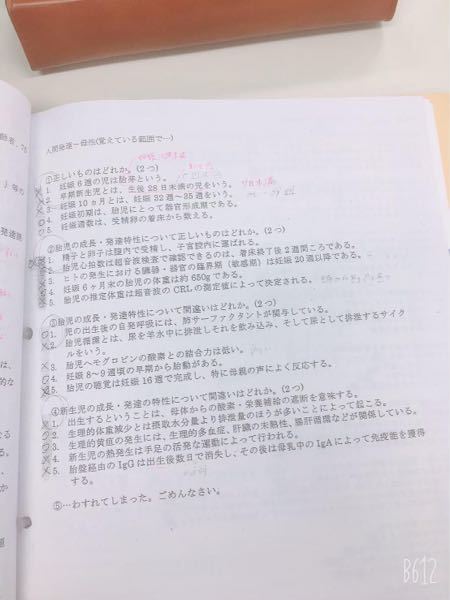 人間発達－母性(覚えている範囲で…)
①正しいものはどれか。(2つ)
1. 妊娠6週の児は胎芽という。
2. 早期新生児とは、生後28日未満の児をいう。 7日未満
3. 妊娠10ヵ月とは、妊娠32週～35週をいう。
4. 妊娠初期は、胎児にとって器官形成期である。
5. 妊娠週数は、受精卵の着床から数える。
②胎児の成長・発達特性について正しいものはどれか。(2つ)
1. 精子と卵子は腹腔内で受精し、子宮腔内に運ばれる。
2. 胎児心拍数は超音波検査で確認できるのは、着床終了後2週間ころである。
3. ヒトの発生における臓器・器官の臨界期(敏感期)は妊娠20週以降である。
4. 妊娠6ヶ月末の胎児の体重は約650gである。
5. 胎児の推定体重は超音波のCRLの測定値によって決定される。
③胎児の成長・発達特性について間違いはどれか。(2つ)
1. 児の出生後の自発呼吸には、肺サーファクタントが関与している。
2. 胎児循環とは、尿を羊水中に排泄しそれを飲み込み、そして尿として排泄するサイク
ルをいう。
3. 胎児ヘモグロビンの酸素との結合力は低い。
4. 妊娠8～9週頃の早期から胎動がある。
5. 胎児の聴覚は妊娠16週で完成し、特に母親の声によく反応する。
④新生児の成長・発達の特性について間違いはどれか。(2つ)
1. 出生するということは、母体からの酸素・栄養補給の遮断を意味する。
2. 生理的体重減少とは摂取水分量より排泄量のほうが多いことによって起こる。
3. 生理的黄疸の発生には、生理的多血症、肝臓の未熟性、腸肝循環などが関係している。
4. 新生児の熱産生は手足の活発な運動によって行われる。
5. 胎盤経由のIgGは出生後数日で消失し、その後は母乳中のIgAによって免疫能を獲得
する。
⑤…わすれてしまった。ごめんなさい。
B612